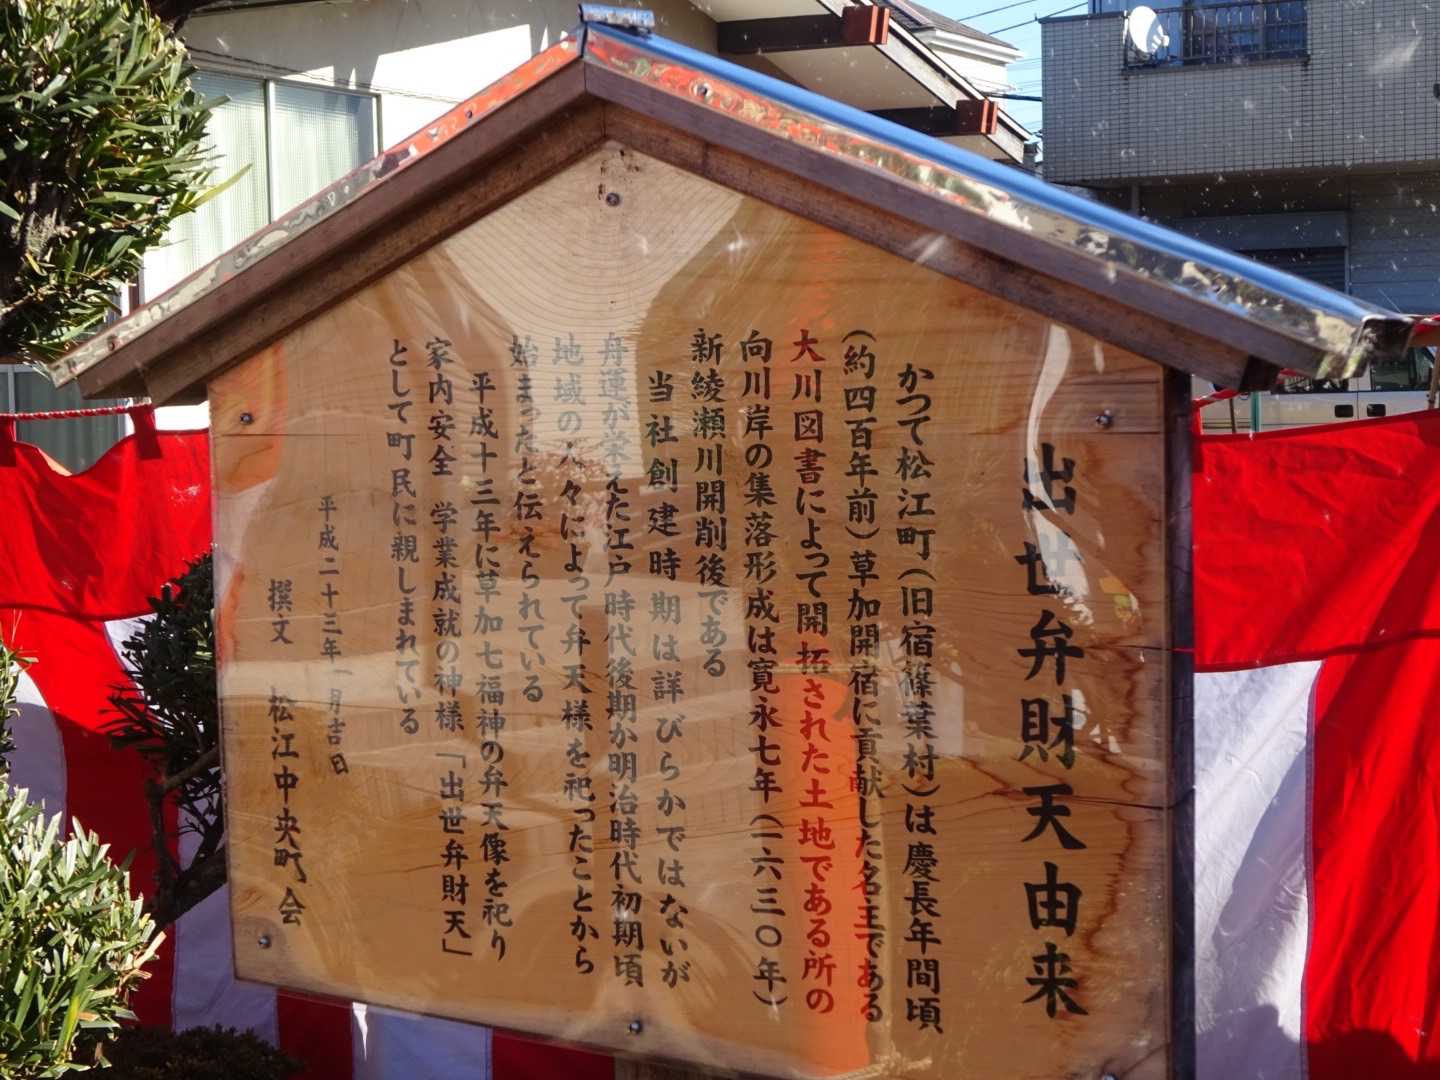 出世弁財天由来
かつて松江町(旧宿篠葉村)は慶長年間頃
(約四百年前)草加開宿に貢献した名主である
大川図書によって開拓された土地である所の
向川岸の集落形成は寛永七年(一六三〇年)
新綾瀬川開削後である
当社創建時期は詳びらかではないが
舟運が栄えた江戸時代後期か明治時代初期頃
地域の人々によって弁天様を祀ったことから
始まったと伝えられている
平成十三年に草加七福神の弁天像を祀り
家内安全 学業成就の神様「出世弁財天」
として町民に親しまれている
平成二十三年一月吉日
撰文 松江中央町会